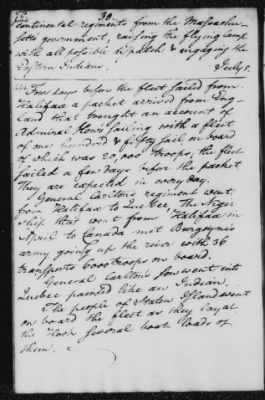 30.
Continental regiments from the Massachu-
setts government, raising the flying Camp
with all possible dispatch & engaging the
Eastern Indians.
July 5.
Five days before the fleet sailed from
Halifax a packet arrived from Eng-
land that brought an account of
Admiral Howe sailing with a fleet
of one hundred & fifty sail on board
of which was 20,000 troops, the fleet
sailed a few days before the packet
They are expected in every day.
General Carltons regiment went
from Halifax to Quebec, The Niger
ship that went from Halifax in
April to Canada met Burgoynes
army going up the river with 36
transports 6000 troops on board.
General Carltons son went into
Quebec painted like an Indian.
The people of Staten Island went
on board the fleet as they lay at
the Hook several boat loads of
them.